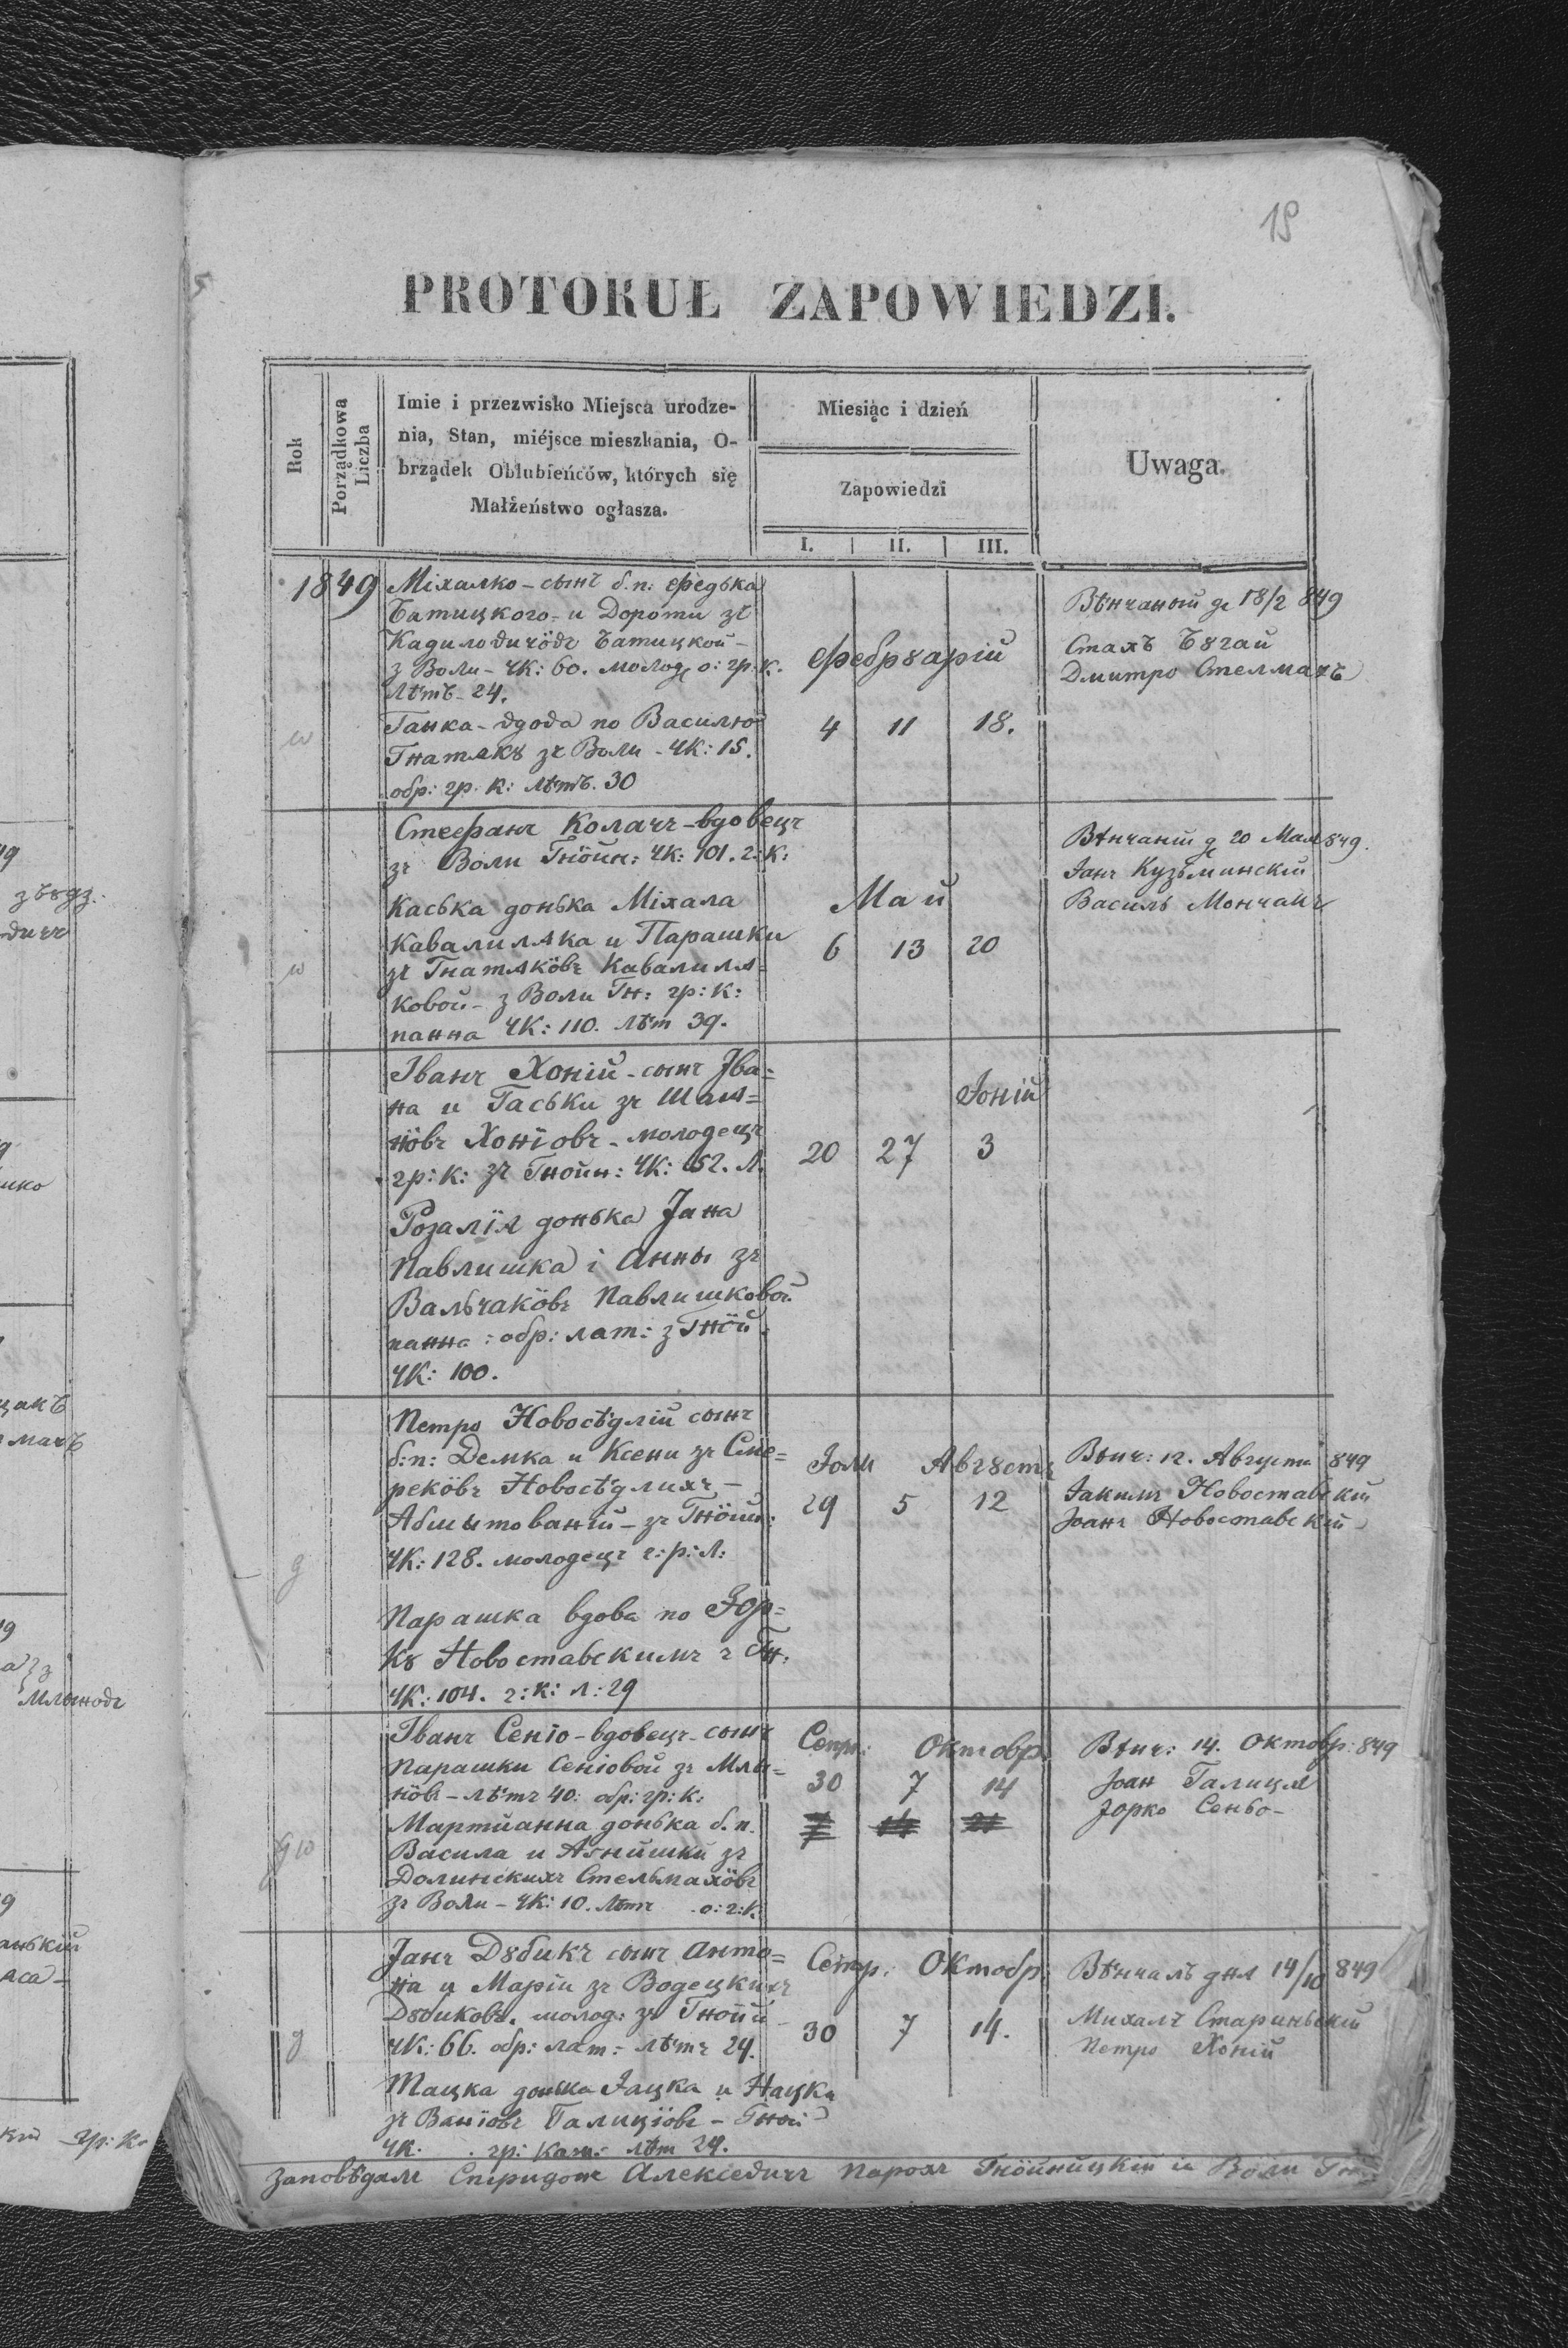 19
PROTOKUŁ ZAPOWIEDZI.
Rok
Porządkowa Liczba
Imie i przezwisko Miejsca urodze-
nia, Stan, miéjsce mieszkania, O-
brządek Oblubieńców, których się
Małżeństwo ogłasza.
Miesiąc i dzień
Zapowiedzi
I. II. III.
Uwaga.
1849
Міхалко - сынъ б.п: Федька
Батицкого - и Дороти зъ
Батицкой -
з Воли - ЧК: 60. молод о: гр: к.
лѣтъ 24.
Ганка - вдова по Василю
Гнатякꙋ зъ Воли - ЧК: 15.
обр: гр. к: лѣтъ. 30
Фебрꙋарій
4 11 18.
Вѣнчаный д 18/2 849
Стахъ Бꙋгай
Дмитро Стелмахъ
w
Стефанъ Колачъ - вдовецъ
зъ Воли Гнöйн: ЧК: 101. г: К:
Каська донька Міхала
Кавалиляка и Парашки
зъ Гнатякöвъ Кавалиля=
ковой - з Воли Гн: гр: к:
панна ЧК: 110. лѣт 39.
Май
6 13 20
Вѣнчаній д 20 Мая 849.
Іанъ Кузьминскій
Василь Мончанъ
w
Іванъ Хоній - сынъ Іва=
на и Гаськи зъ Шаля=
нöвъ Хонїовъ - молодецъ
гр: к: зъ Гнойн: ЧК: 52. Л:
Розалїя донька Іана
Павлишка і Анны зъ
Вальчакöвъ Павлишковой
панна: обр: лат: з Гнöй
ЧК: 100.
Іоній
20 27 3
Петро Новосѣдлій сынъ
б:п: Демка и Ксени зъ Сме=
рекöвъ Новосѣдлихъ -
Абшытованій - зъ Гнöйн:
ЧК: 128. молодецъ г: р: Л:
Парашка вдова по Іор=
кꙋ Новоставскимъ з Гн:
ЧК: 104. г: к: л: 29
Іоли Авгꙋстъ
29 5 12
Вѣнч: 12. Августи 849
Іакимъ Новоставскій
Іоанъ Новоставскій
g
Іванъ Сеніо - вдовецъ - сынъ
Парашки Сеніовой зъ Млы=
нöвъ - лѣтъ 40: обр: гр: к:
Мартйанна донька б. п.
Васила и Агнишки зъ
Долинскихъ Стельмахöвъ
зъ Воли - ЧК: 10. лѣтъ о: г: к:
Септ: Октовр.
30 7 14
7 14 21
Вѣнч: 14. Октовр: 849
Іоан Галиця
Іорко Сеньо -
g w
Іанъ Дꙋбикъ сынъ Анто=
на и Маріи зъ Водецкихъ
Дꙋбиковъ. молод: зъ Гнöй
ЧК: 66. обр: лат: - лѣтъ 24.
Мацка донька Іацка и Нацки
зъ Ванїовъ Галицїовъ - Гной
ЧК. гр: кат: - лѣт 24.
Септр: Октобр
30 7 14.
Вѣнчалъ дня 14/10 849
Михалъ Стариньскій
Петро Хоній
g
Заповѣдалъ Спиридонъ Алексевичъ Парохъ Гнöйницкій и Воли Гн: